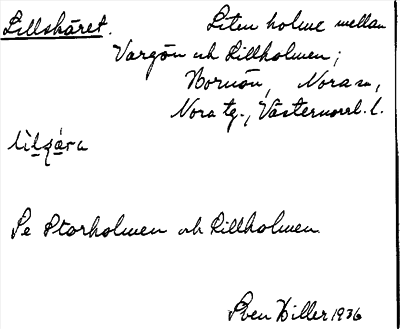 Lillskäret. Liten holme mellan
Vargön och Lillholmen;
Norasn,
Nora tg., Västernorrl. l.
Se Storholmen och Lillholmen.
Sven Hiller 1936